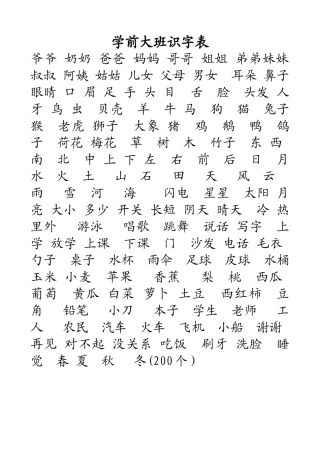 学前大班识字表
爷爷 奶奶 爸爸 妈妈 哥哥 姐姐 弟弟妹妹
叔叔 阿姨 姑姑 儿女 父母 男女 耳朵 鼻子
眼睛 口 眉 足 手 头 目 舌 脸 头发 人
牙 鸟 虫 贝壳 羊 牛 马 狗 猫 兔子
猴 老虎 狮子 大象 猪 鸡 鹅 鸭 鸽
子 荷花 梅花 草 树 木 竹子 东 西
南 北 中 上 下 左 右 前 后 日 月
水 火 土 山 石 田 天 风 云
雨 雪 河 海 闪电 星星 太阳 月
亮 大小 多少 开关 长短 阴天 晴天 冷 热
里外 游泳 唱歌 跳舞 说话 写字 上
学 放学 上课 下课 门 沙发 电话 毛衣
勺子 桌子 水杯 雨伞 足球 皮球 水桶
玉米 小麦 苹果 香蕉 梨 桃 西瓜
葡萄 黄瓜 白菜 萝卜 土豆 西瓜 豆
角 铅笔 小刀 本子 学生 老师 工
人 农民 汽车 火车 飞机 小船 谢谢
再见 对不起 没关系 吃饭 刷牙 洗脸 睡
觉 春 夏 秋 冬(200个)